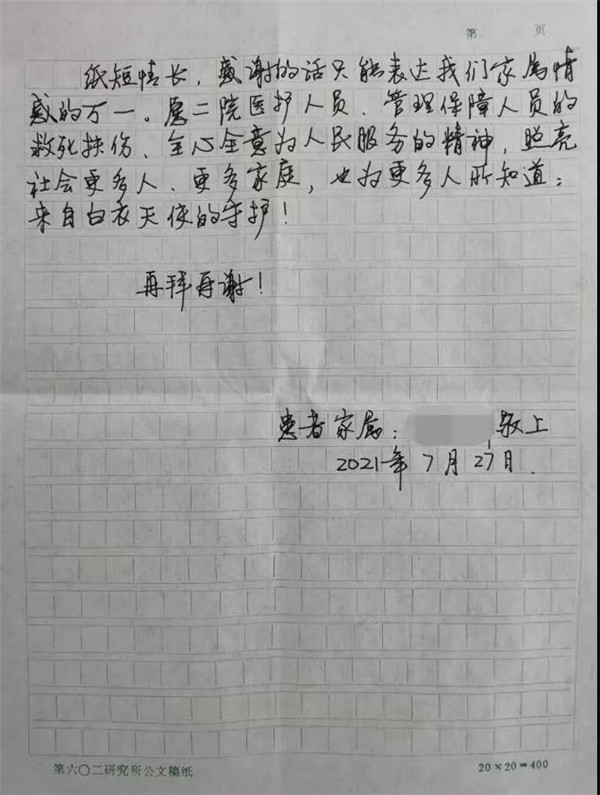 第 页
纸短情长，感谢的话只能表达我们家属情
感的万一。愿二院医护人员、管理保障人员的
救死扶伤、全心全意为人民服务的精神，照亮
社会更多人、更多家庭，也为更多人所知道：
来自白衣天使的守护！
再拜再谢！
患者家属： 敬上
2021年7月27日.
第六〇二研究所公文稿纸 20×20=400